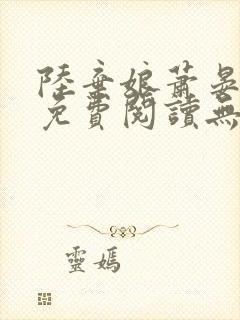 陸棄娘蕭晏
免費閱讀無
靈媽